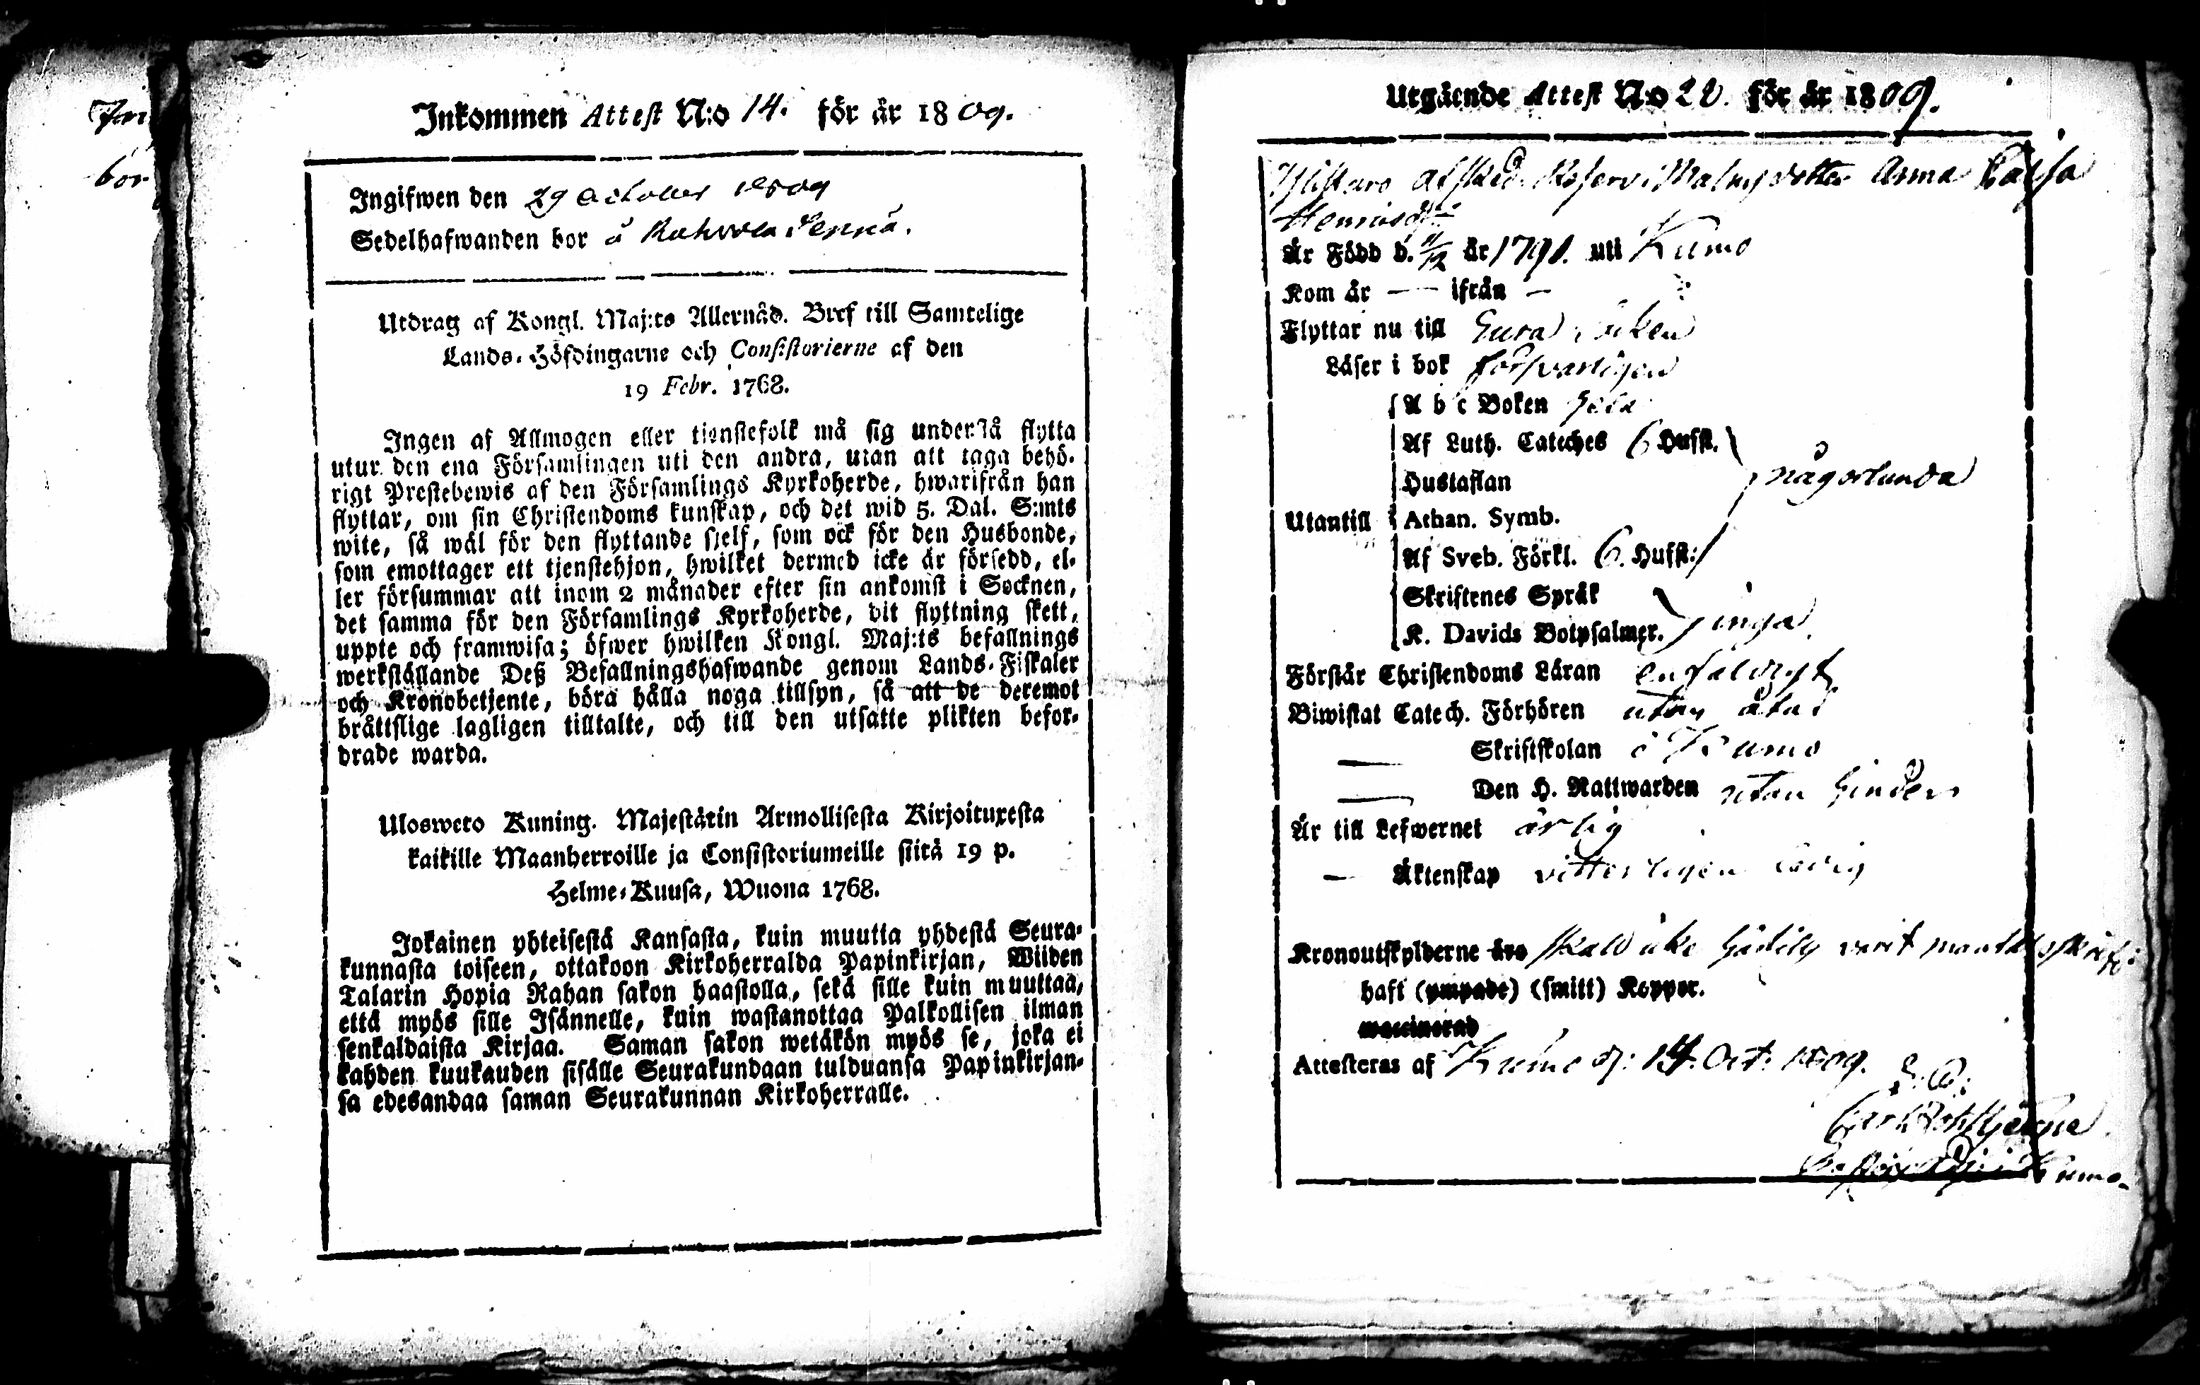 Inkommen Attest N:o 14. för år 1809.
Ingifwen den 29 October 1809
Sedelhafwanden bor å
Utdrag af Kongl. Maj:ts Allernåd. Bref till Samtelige
Lands-Höfdingarne och Consistorierne af den
19 Febr. 1768.
Ingen af Allmogen eller tjenstefolk må sig understå flytta
utur den ena Församlingen uti den andra, utan att taga behö-
rigt Prestebewis af den Församlings Kyrkoherde, hwarifrån han
flyttar, om sin Christendoms kunskap, och det wid 5. Dal. S:mts
wite, så wäl för den flyttande sjelf, som ock för den Husbonde,
som emottager ett tjenstehjon, hwilket dermed icke är försedd, el-
ler försummar att inom 2 månader efter sin ankomst i Socknen,
det samma för den Församlings Kyrkoherde, dit flyttning skett,
uppte och framwisa; öfwer hwilken Kongl. Maj:ts befallnings
werkställande Deß Befallningshafwande genom Lands-Fiskaler
och Kronobetjente, böra hålla noga tillsyn, så att de deremot
bråttslige lagligen tilltalte, och till den utsatte plikten befor-
drade warda.
Ulosweto Kuning. Majestätin Armollisesta Kirjoituxesta
kaikille Maanherroille ja Consistoriumeille siitä 19 p.
Helme-Kuusa, Wuona 1768.
Jokainen yhteisestä Kansasta, kuin muutta yhdestä Seura-
kunnasta toiseen, ottakoon Kirkoherralda Papinkirjan, Wiiden
Talarin Hopia Rahan sakon haastolla, sekä sille kuin muuttaa,
että myös sille Isännelle, kuin wastanottaa Palkollisen ilman
senkaldaista Kirjaa. Saman sakon wetäkön myös se, joka ei
kahden kuukauden sisälle Seurakundaan tulduansa Papinkirjan-
sa edesandaa saman Seurakunnan Kirkoherralle.
Utgående Attest No 22. för år 1809.
Anna Caisa
Henricsdr
Är Född d. 11/12 år 1791. uti Kumo
Kom år — ifrån —
Flyttar nu till Eura Socken
Läser i bok försvarligen
A b c Boken hela
Af Luth. Cateches 6 Hufst.
Hustaflan någorlunda
Utantill Athan. Symb.
Af Sveb. Förkl. 6. Hufst:
Skriftenes Språk
K. Davids Botpsalmer. inga
Förstår Christendoms Läran enfaldigt
Biwistat Catech. Förhören utan åtal
— Skriftskolan i Kumo
— Den H. Nattwarden utan hinder
Är till Lefwernet ärlig
— Äktenskap vitterligen ledig
Kronoutskylderne äro skall icke härtils varit mantalsskrifv:
haft (ympade) (smitt) Koppor.
waccinerad
Attesteras af Kumo d: 14. Oct: 1809.
Kumo.